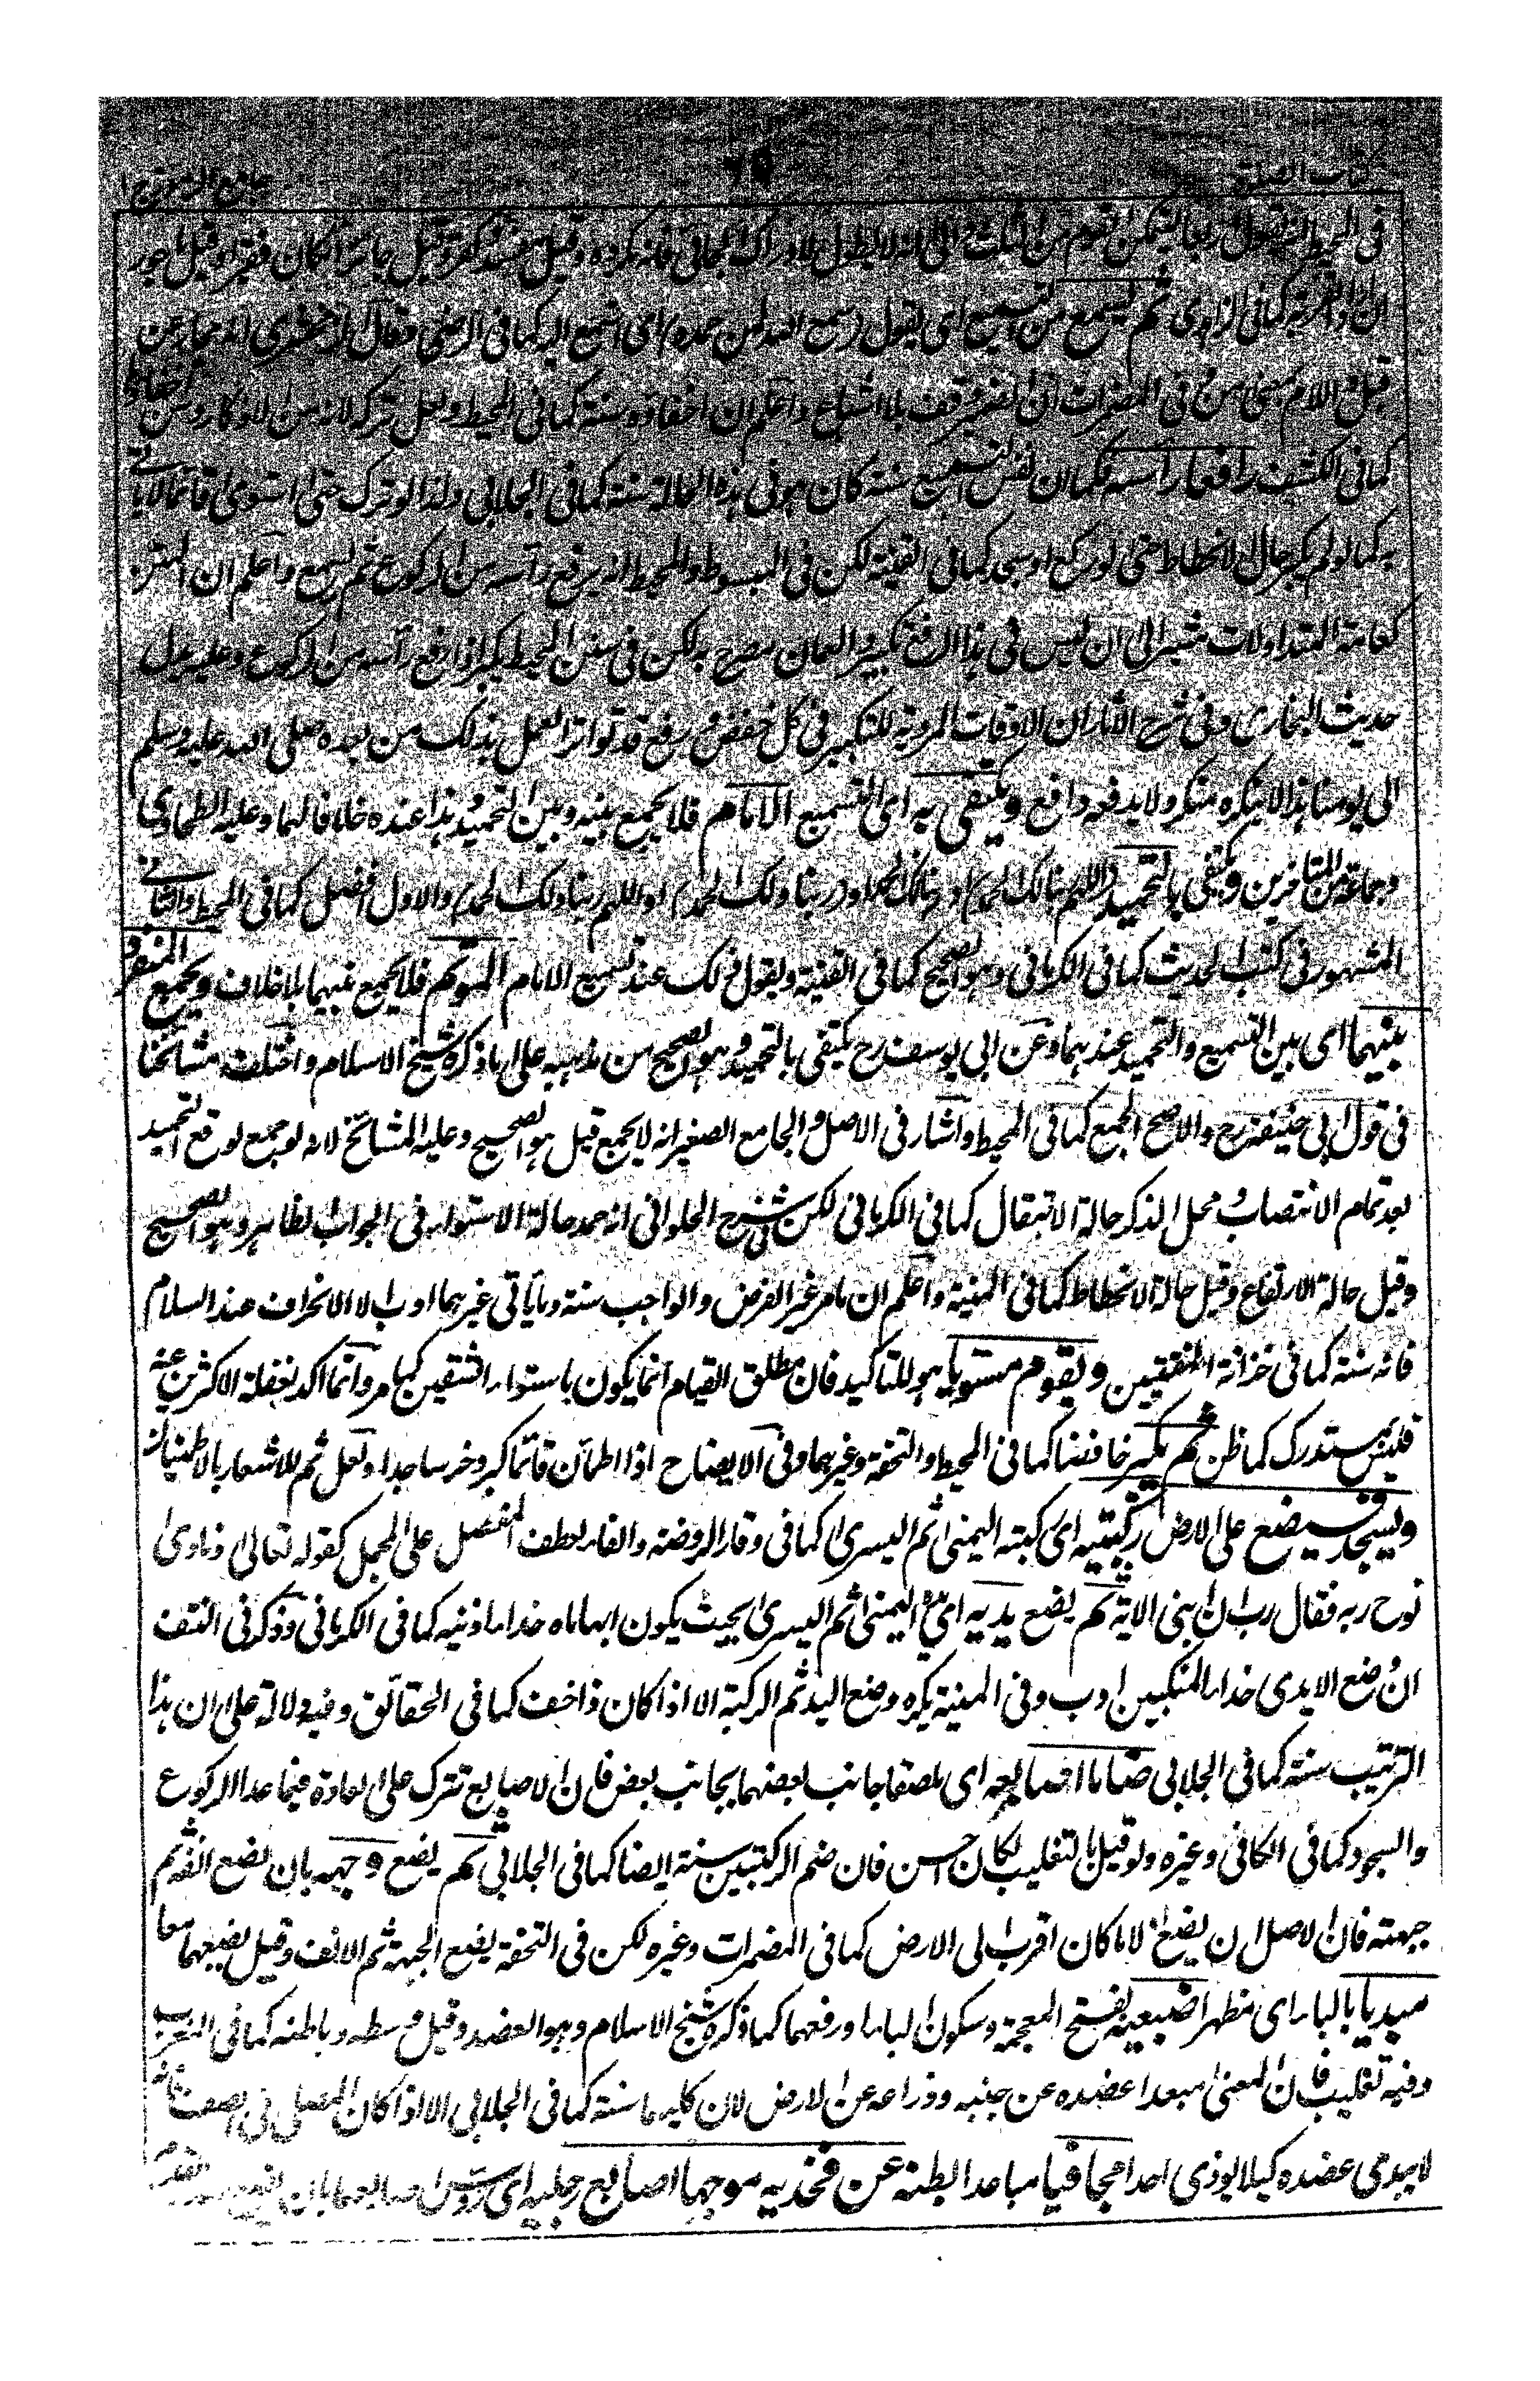 كتاب الصلوة
جامع الرموز ج ١
فى المحيط انه يقول اربعا ليتمكن القوم من الثلث وفى انه لا يطول لادراك الجائى فانه مكروه وقيل مفسد وكفر وقيل جائز ان كان فقيرا وقيل ماجور
ان اراد القربة كما فى الزاهدى ثم يسمع من التسميع اى يقول سمع الله لمن حمده اى اسمع اليه كما فى الرضى وقال الزمخشرى انه مجاز عن
قبل واللام بمعنى من فى المضمرات ان الضمير وقف بلا اشباع واعلم ان اخفاءه سنة كما فى المحيط ولعل تركه لانه من الاذكار ومن
كما فى الكشف رافعا راسه فكما ان نفس التسميع سنة كان هو فى هذه الحالة سنة كما فى الجلابى ولذا لو ترك حتى استوى قائما لا ياتى
به كما لو لم يكبر حال الانحطاط حتى لو ركع او سجد كما فى القنية لكن فى المبسوط والمحيط انه يرفع رأسه من الركوع ثم يسمع واعلم ان المتن
كعامة المتداولات مشير الى ان ليس فى هذا الرفع تكبير والعمان مصرح به لكن فى سنن المحيط يكبر اذا رفع رأسه من الركوع وعليه يدل
حديث البخارى وفى شرح الآثار ان الاوقات المروية للتكبير فى كل خفض ورفع قد تواتر العمل بذلك من بعده صلى الله عليه وسلم
الى يومنا هذا لا ينكره منكر ولا يدفعه دافع ويكتفى به اى التسميع الامام فلا يجمع بينه وبين التحميد وهذا عنده خلافا لهما وعليه الطحاوى
وجماعة من المتأخرين ويكتفى بالتحميد اللهم ربنا لك الحمد او ربنا لك الحمد او ربنا ولك الحمد او اللهم ربنا ولك الحمد والاول افضل كما فى المحيط والثانى
المشهور فى كتب الحديث كما فى الكرمانى وهو الصحيح كما فى القنية ويقول ذلك عند تسميع الامام المؤتم فلا يجمع بينهما بلا خلاف ويجمع المنفرد
بينهما اى بين التسميع والتحميد عندهما وعن ابى يوسف رح يكتفى بالتحميد وهو الصحيح من مذهبه على ما ذكره شيخ الاسلام واختلف مشائخنا
فى قول ابى حنيفة رح والاصح الجمع كما فى المحيط واشار فى الاصل والجامع الصغير انه لا يجمع قيل هو الصحيح وعليه المشائخ لانه لو جمع لوقع التحميد
بعد تمام الانتصاب ومحل الذكر حالة الانتقال كما فى الكرمانى لكن فى شرح الحلوانى انه حمد حالة الاستواء فى الجواب الظاهر وهو الصحيح
وقيل حالة الارتفاع وقيل حالة الانحطاط كما فى المنية واعلم ان ما مر غير الفرض والواجب سنة وما يأتى غيرهما ادب الا الانحراف عند السلام
فانه سنة كما فى خزانة المفتيين ويقوم مستويا هو للتاكيد فان مطلق القيام انما يكون باستواء الشقين كما مر وانما اكد لغفلة الاكثرين عنه
فليس بمستدرك كما ظن ثم يكبر خافضا كما فى المحيط والتحفة وغيرهما وفى الايضاح اذا اطمأن قائما كبر وخر ساجدا ولعل ثم للاشعار بالاطمينان
ويسجد فيضع على الارض ركبتيه اى ركبته اليمنى ثم اليسرى كما فى وقار الروضة والفاء لعطف المفصل على المجمل كقوله تعالى ونادى
نوح ربه فقال رب ان ابنى الآية ثم يضع يديه اى اليمنى ثم اليسرى بحيث يكون ابهاماه حذاء اذنيه كما فى الكرمانى وذكر فى النتف
ان وضع الايدى حذاء المنكبين ادب وفى المنية يكره وضع اليد ثم الركبة الا اذا كان ذا خف كما فى الحقائق وفيه دلالة على ان هذا
الترتيب سنة كما فى الجلابى ضاما اصابعه اى ملصقا جانب بعضها بجانب بعض فان الاصابع تترك على العادة فيما عدا الركوع
والسجود كما فى الكافى وغيره ولو قيل بالتغليب لكان احسن فان ضم الركبتين سنة ايضا كما فى الجلابى ثم يضع وجهه بان يضع انفه ثم
جبهته فان الاصل ان يضع اولا ما كان اقرب الى الارض كما فى المضمرات وغيره لكن فى التحفة يضع الجبهة ثم الانف وقيل يضعهما معا
مبديا بالياء اى مظهرا ضبعيه بفتح المعجمة وسكون الباء او رفعها كما ذكره شيخ الاسلام وهو العضد وقيل وسطه وباطنه كما فى المغرب
وفيه تغليب فان المعنى مبعدا عضده عن جنبه وذراعه عن الارض لان كليهما سنة كما فى الجلابى الا اذا كان المصلى فى الصف فانه
لا يبدى عضده كيلا يوذى احدا مجافيا مباعدا بطنه عن فخذيه موجها اصابع رجليه اى رؤس اصابعهما بان يضع